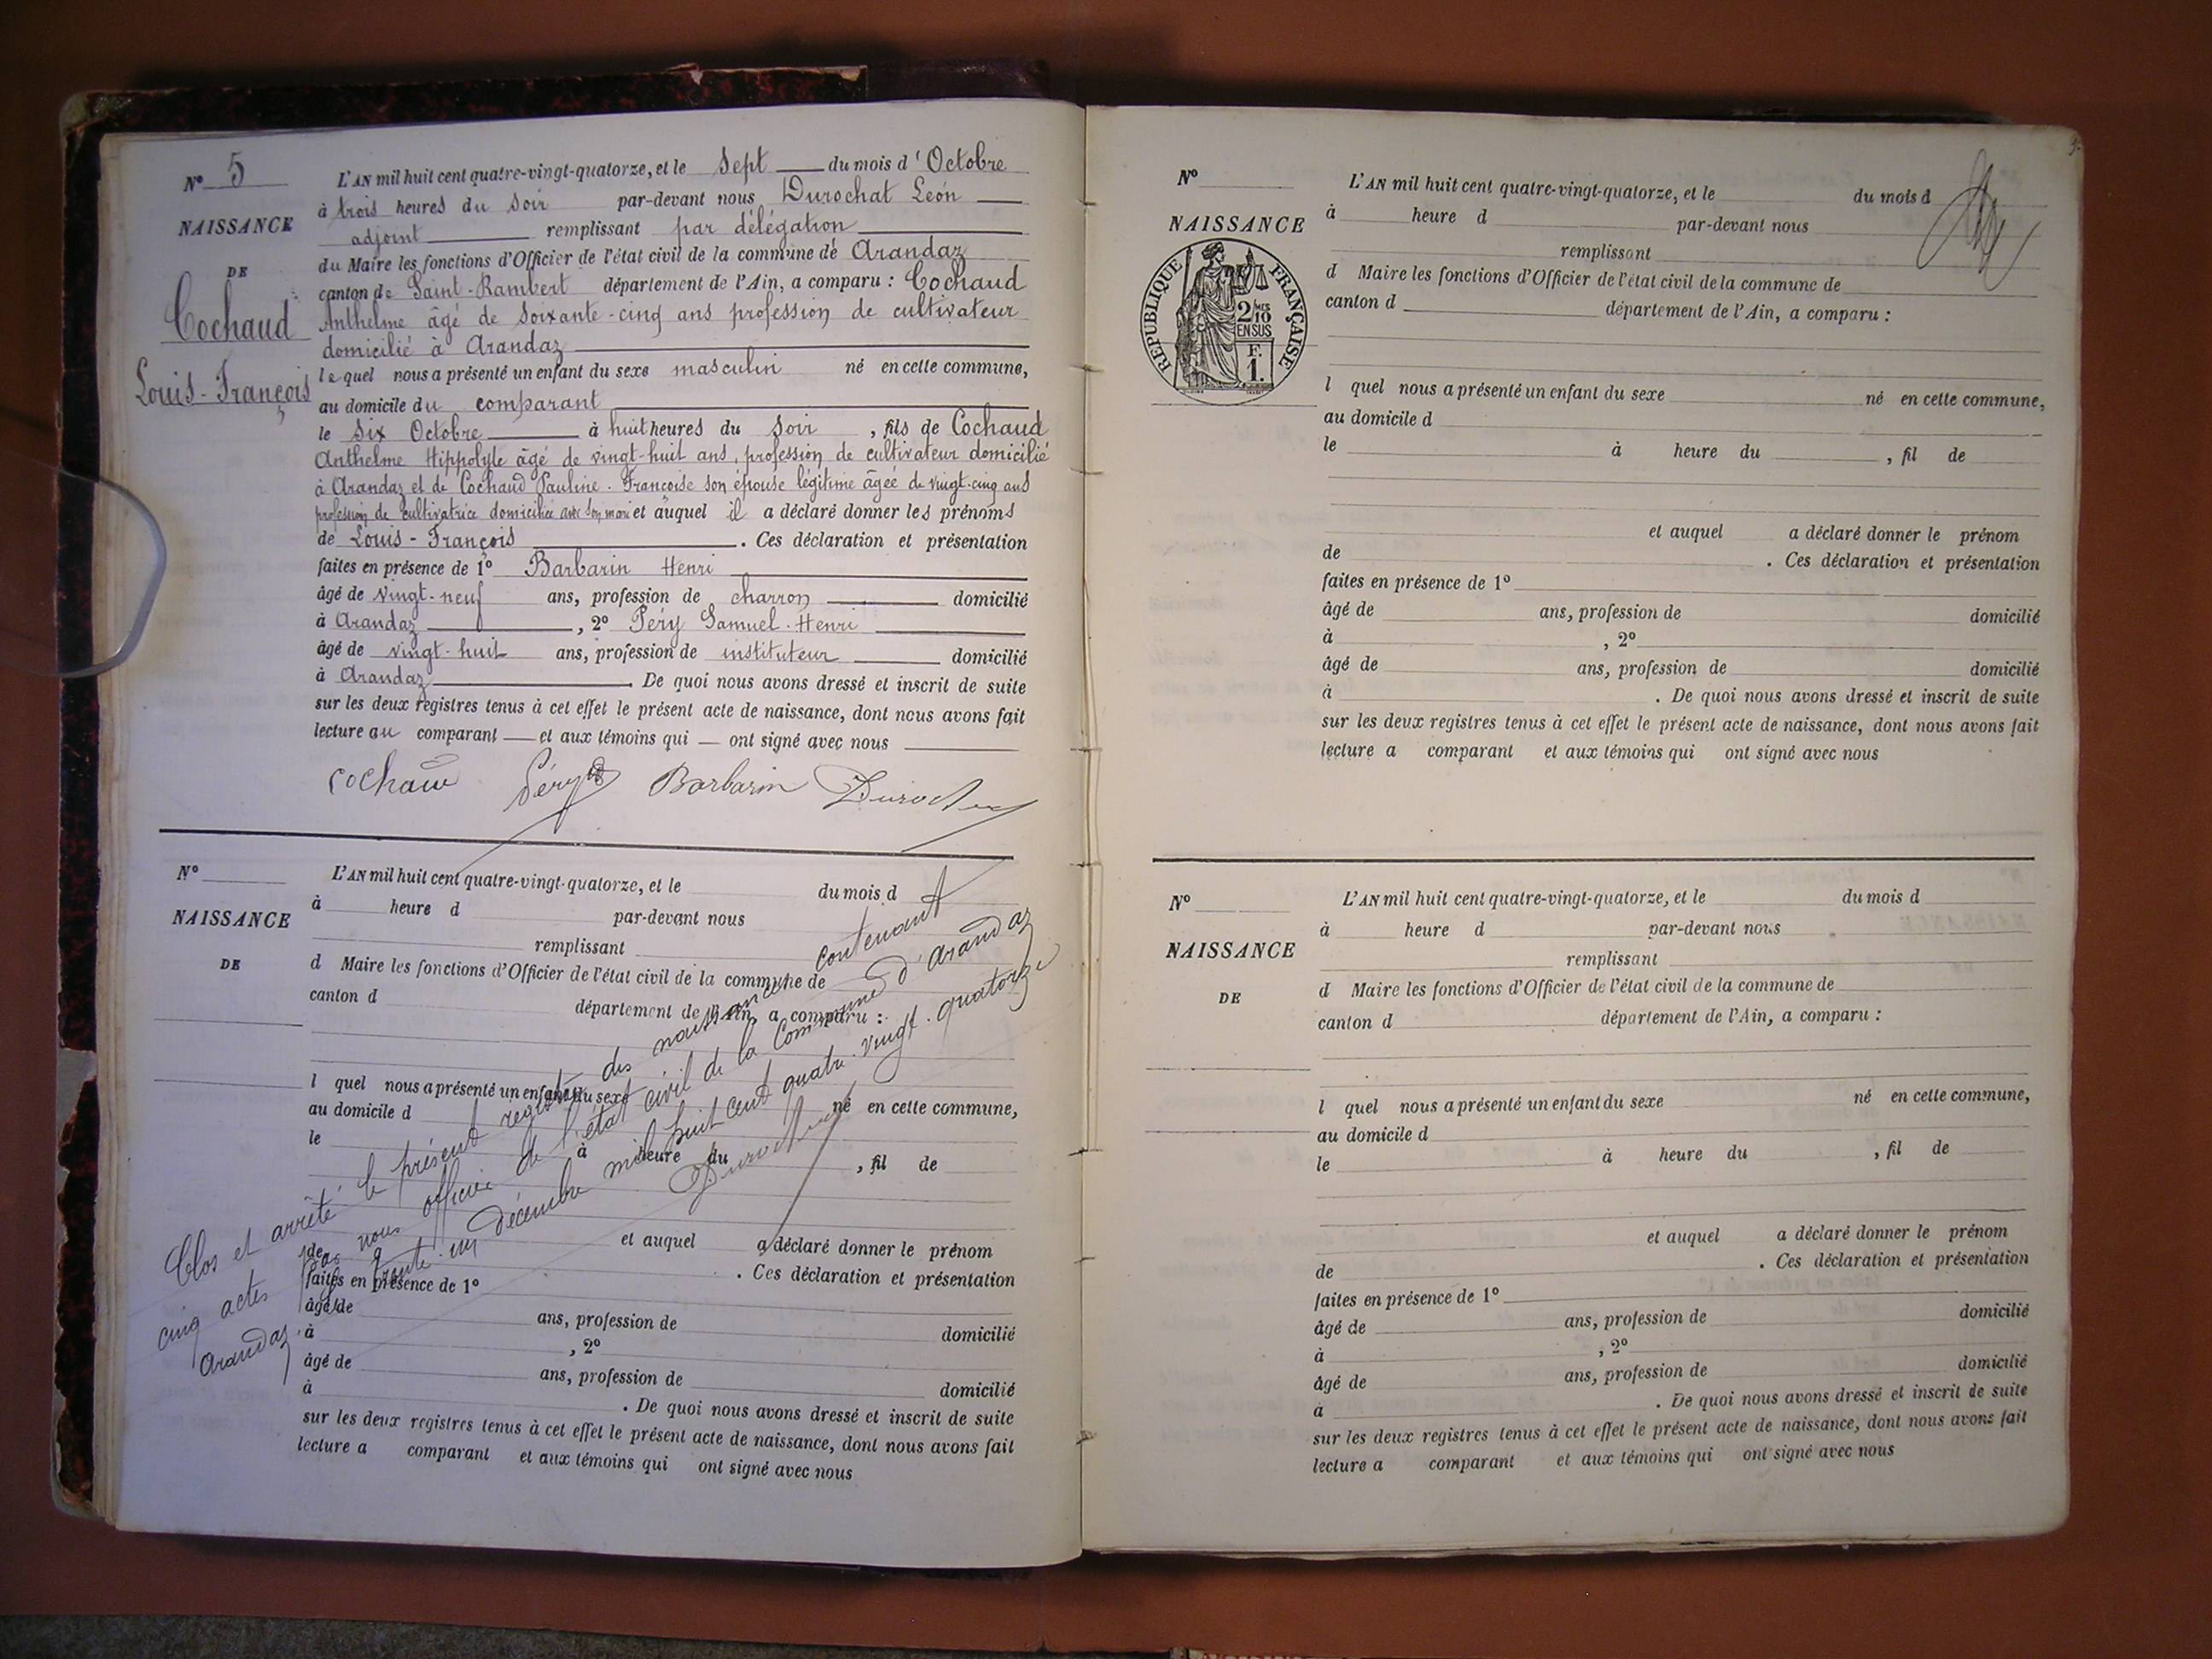 N° 5
NAISSANCE
DE
Cochaud
Louis-François
L'AN mil huit cent quatre-vingt-quatorze, et le sept du mois d'Octobre
à trois heures du soir par-devant nous Durochat Léon
adjoint remplissant par délégation
du Maire les fonctions d'Officier de l'état civil de la commune de Arandaz
canton de Saint-Rambert département de l'Ain, a comparu : Cochaud
Anthelme âgé de soixante-cinq ans profession de cultivateur
domicilié à Arandaz
lequel nous a présenté un enfant du sexe masculin né en cette commune,
au domicile du comparant
le six Octobre à huit heures du soir, fils de Cochaud
Anthelme Hippolyte âgé de vingt-huit ans, profession de cultivateur domicilié
à Arandaz et de Cochaud Pauline-Françoise son épouse légitime âgée de vingt-cinq ans
profession de cultivatrice domiciliée avec son mari et auquel il a déclaré donner les prénoms
de Louis-François. Ces déclaration et présentation
faites en présence de 1° Barbarin Henri
âgé de vingt-neuf ans, profession de charron domicilié
à Arandaz, 2° Péry Samuel-Henri
âgé de vingt-huit ans, profession de instituteur domicilié
à Arandaz. De quoi nous avons dressé et inscrit de suite
sur les deux registres tenus à cet effet le présent acte de naissance, dont nous avons fait
lecture au comparant et aux témoins qui ont signé avec nous
Cochaud Péry Barbarin Durochat
N°
NAISSANCE
DE
L'AN mil huit cent quatre-vingt-quatorze, et le du mois d
à heure d par-devant nous
remplissant
d Maire les fonctions d'Officier de l'état civil de la commune de
canton d département de l'Ain, a comparu :
l quel nous a présenté un enfant du sexe né en cette commune,
au domicile d
le à heure du , fil de
et auquel a déclaré donner le prénom
de . Ces déclaration et présentation
faites en présence de 1°
âgé de ans, profession de domicilié
à , 2°
âgé de ans, profession de domicilié
à . De quoi nous avons dressé et inscrit de suite
sur les deux registres tenus à cet effet le présent acte de naissance, dont nous avons fait
lecture a comparant et aux témoins qui ont signé avec nous
Clos et arrêté le présent registre des naissances contenant
cinq actes par nous officier de l'état civil de la Commune d'Arandaz
Arandaz, le trente-un décembre mil huit cent quatre-vingt-quatorze
Durochat
N°
NAISSANCE
RÉPUBLIQUE FRANÇAISE
2 MES
10
EN SUS
F.
1.
L'AN mil huit cent quatre-vingt-quatorze, et le du mois d
à heure d par-devant nous
remplissant
d Maire les fonctions d'Officier de l'état civil de la commune de
canton d département de l'Ain, a comparu :
l quel nous a présenté un enfant du sexe né en cette commune,
au domicile d
le à heure du , fil de
et auquel a déclaré donner le prénom
de . Ces déclaration et présentation
faites en présence de 1°
âgé de ans, profession de domicilié
à , 2°
âgé de ans, profession de domicilié
à . De quoi nous avons dressé et inscrit de suite
sur les deux registres tenus à cet effet le présent acte de naissance, dont nous avons fait
lecture a comparant et aux témoins qui ont signé avec nous
N°
NAISSANCE
DE
L'AN mil huit cent quatre-vingt-quatorze, et le du mois d
à heure d par-devant nous
remplissant
d Maire les fonctions d'Officier de l'état civil de la commune de
canton d département de l'Ain, a comparu :
l quel nous a présenté un enfant du sexe né en cette commune,
au domicile d
le à heure du , fil de
et auquel a déclaré donner le prénom
de . Ces déclaration et présentation
faites en présence de 1°
âgé de ans, profession de domicilié
à , 2°
âgé de ans, profession de domicilié
à . De quoi nous avons dressé et inscrit de suite
sur les deux registres tenus à cet effet le présent acte de naissance, dont nous avons fait
lecture a comparant et aux témoins qui ont signé avec nous